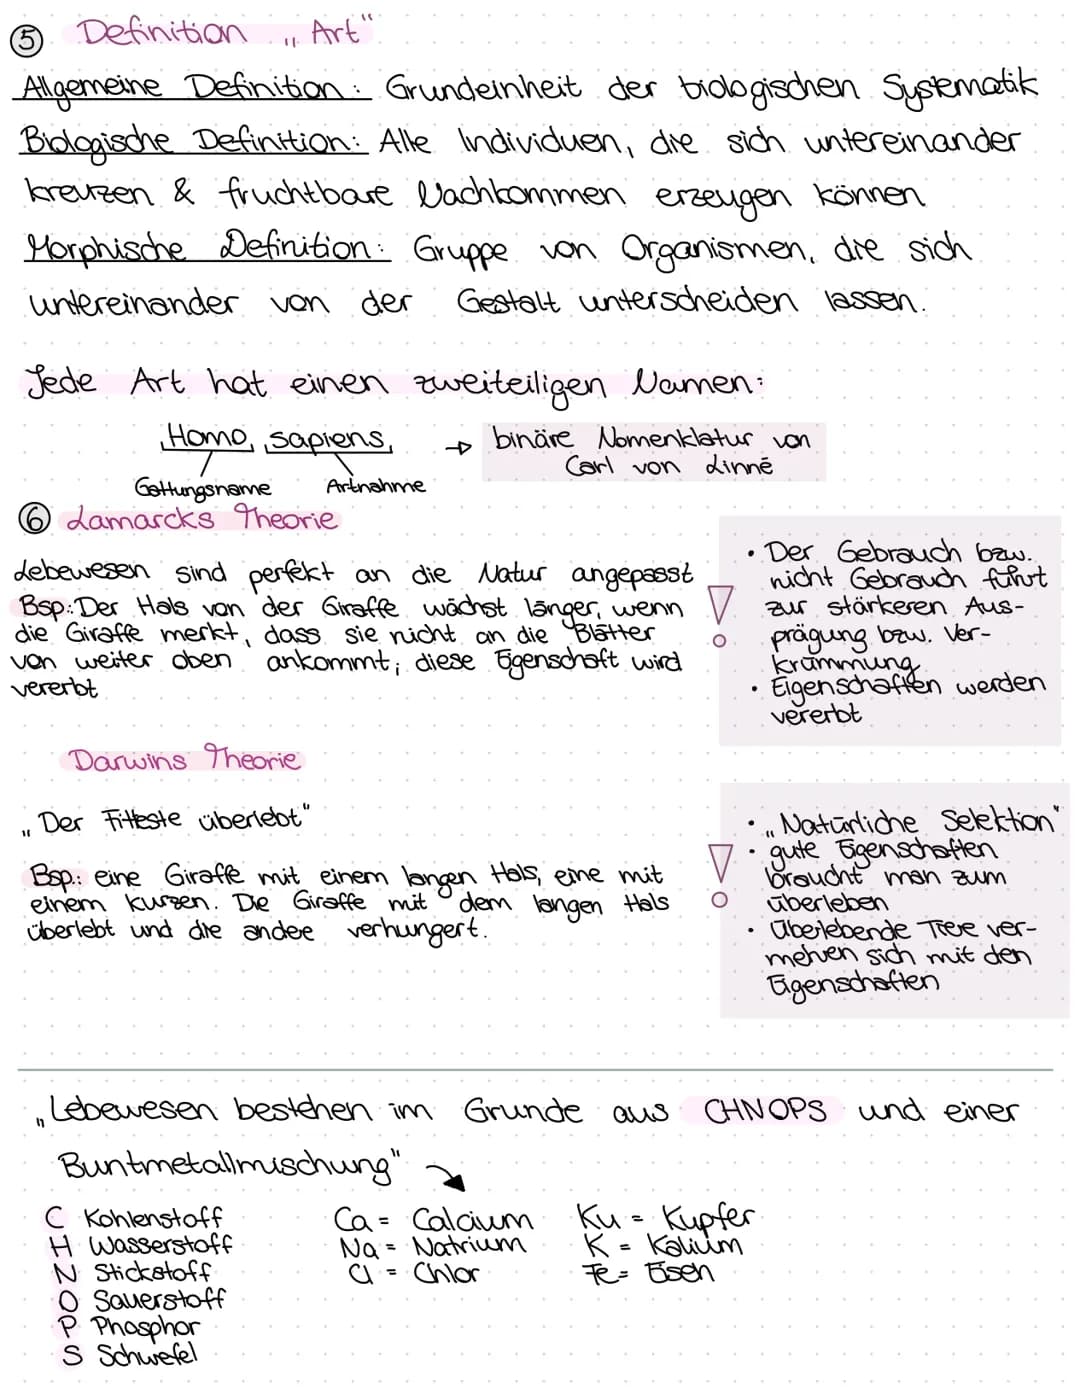 ⑤ Definition „Art“
Allgemeine Definition: Grundeinheit der biologischen Systematik
Biologische Definition: Alle Individuen, die sich untereinander
kreuzen & fruchtbare Nachkommen erzeugen können
Morphische Definition: Gruppe von Organismen, die sich
untereinander von der Gestalt unterscheiden lassen.
Jede Art hat einen zweiteiligen Namen:
Homo sapiens → binäre Nomenklatur von
Carl von Linné
Gattungsname Artnahme
⑥ Lamarcks Theorie
Lebewesen sind perfekt an die Natur angepasst
Bsp.: Der Hals von der Giraffe wächst länger, wenn
die Giraffe merkt, dass sie nicht an die Blätter
von weiter oben ankommt; diese Eigenschaft wird
vererbt
• Der Gebrauch bzw.
nicht Gebrauch führt
zur stärkeren Aus-
prägung bzw. Ver-
krümmung
• Eigenschaften werden
vererbt
Darwins Theorie
„Der Fitteste überlebt“
Bsp.: eine Giraffe mit einem langen Hals, eine mit
einem kurzen. Die Giraffe mit dem langen Hals
überlebt und die andee verhungert.
• „Natürliche Selektion“
• gute Eigenschaften
braucht man zum
überleben
• Überlebende Tiere ver-
mehren sich mit den
Eigenschaften
„Lebewesen bestehen im Grunde aus CHNOPS und einer
Buntmetallmischung“
C Kohlenstoff
H Wasserstoff
N Stickstoff
O Sauerstoff
P Phosphor
S Schwefel
Ca = Calcium
Na = Natrium
Cl = Chlor
Ku = Kupfer
K = Kalium
Fe = Eisen